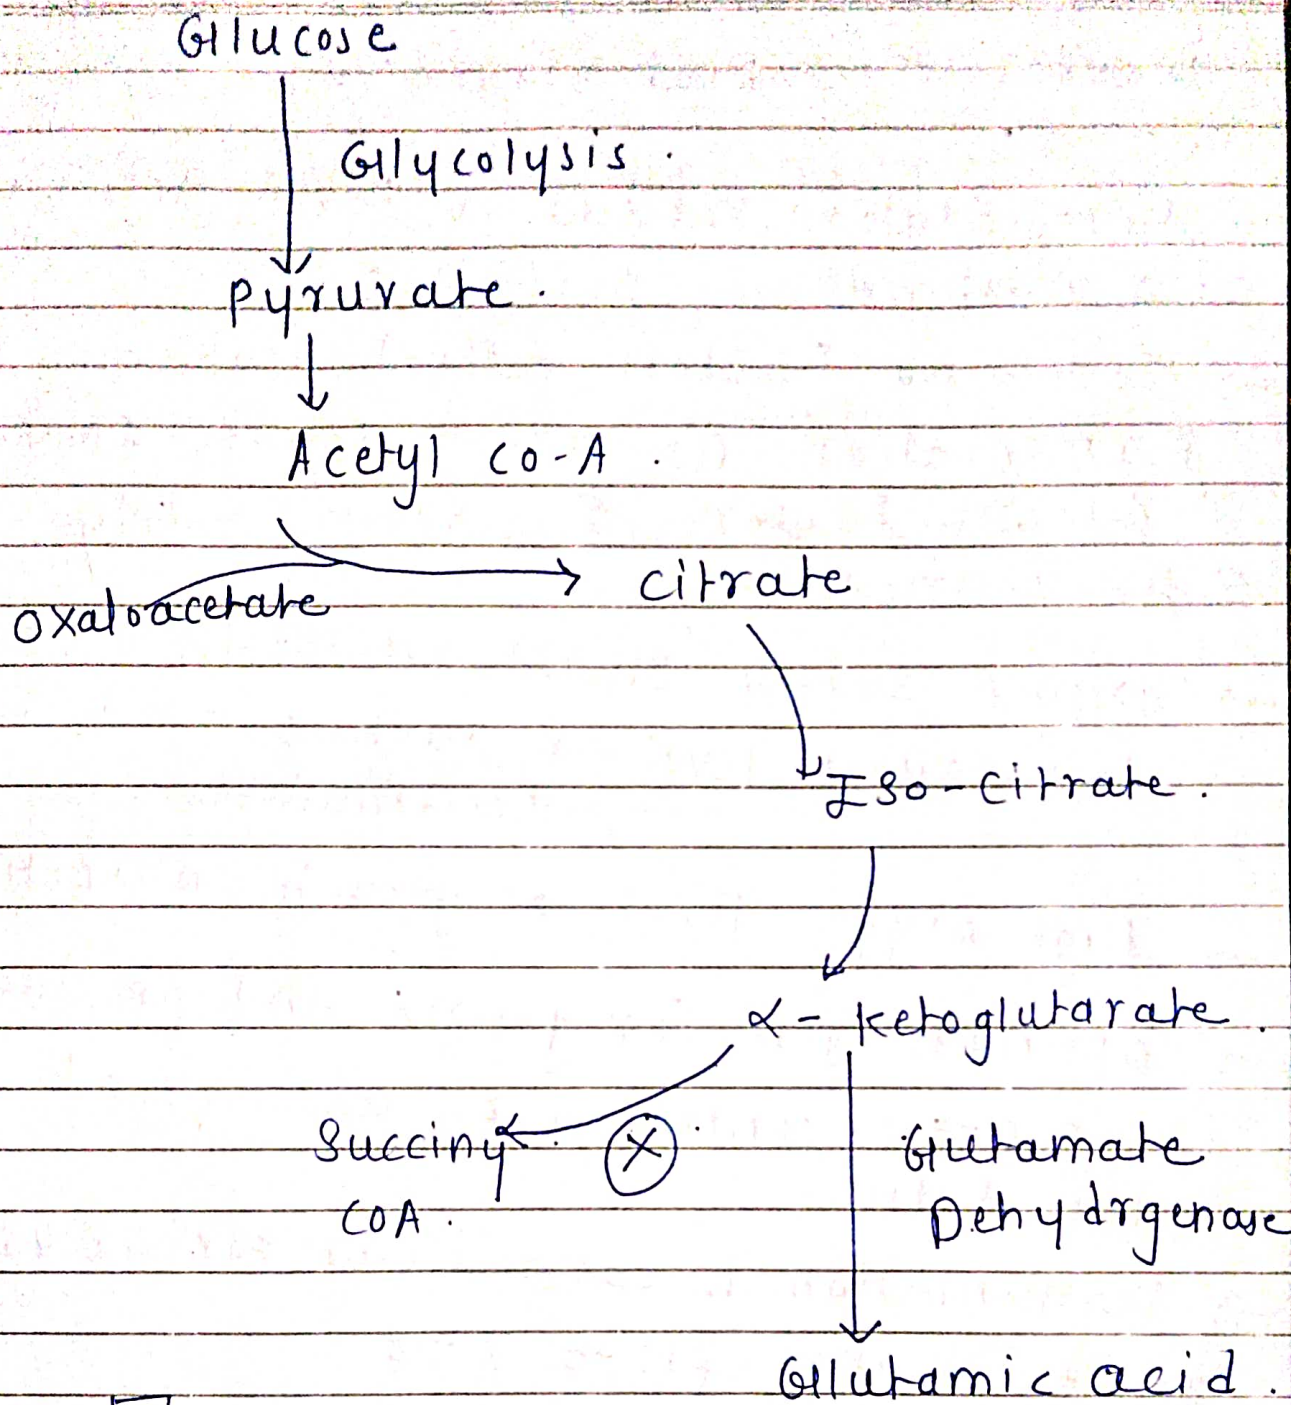 Glucose
Glycolysis.
Pyruvate.
Acetyl CO-A.
Oxaloacetate
Citrate
Iso-Citrate.
α-ketoglutarate.
Succinyl
COA.
X
Glutamate
Dehydrgenase
Glutamic acid.